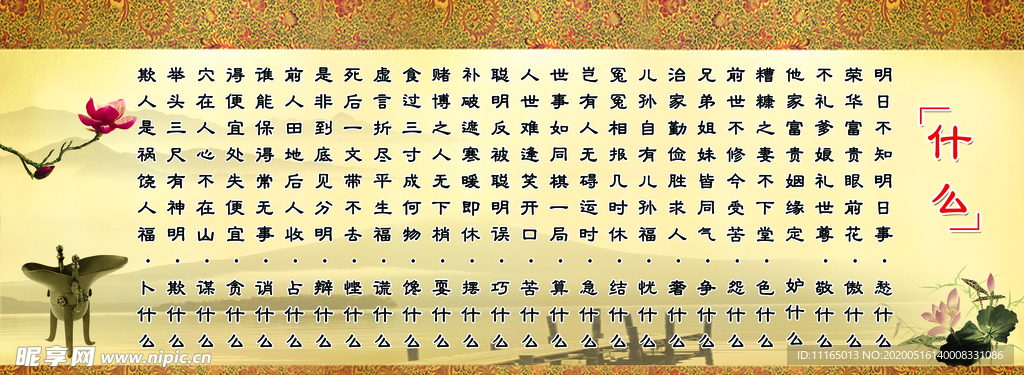 「什么」
明日不知明日事··愁什么
荣华富贵眼前花··傲什么
不礼爹娘礼世尊··敬什么
他家富贵姻缘定··妒什么
糟糠之妻不下堂··色什么
前世不修今受苦··怨什么
兄弟姐妹皆同气··争什么
治家勤俭胜求人··奢什么
儿孙自有儿孙福··忧什么
冤冤相报几时休··结什么
岂有人无碍运时··急什么
世事如同棋一局··算什么
人世难逢笑开口··苦什么
聪明反被聪明误··巧什么
补破遮寒暖即休··摆什么
赌博之人无下梢··耍什么
食过三寸成何物··馋什么
虚言折尽平生福··谎什么
死后一文带不去··悭什么
是非到底见分明··辩什么
前人田地后人收··占什么
谁能保得常无事··诮什么
得便宜处失便宜··贪什么
穴在人心不在山··谋什么
举头三尺有神明··欺什么
欺人是祸饶人福··卜什么
昵享网 www.nipic.cn
ID:11165013 NO:20200516140008331086